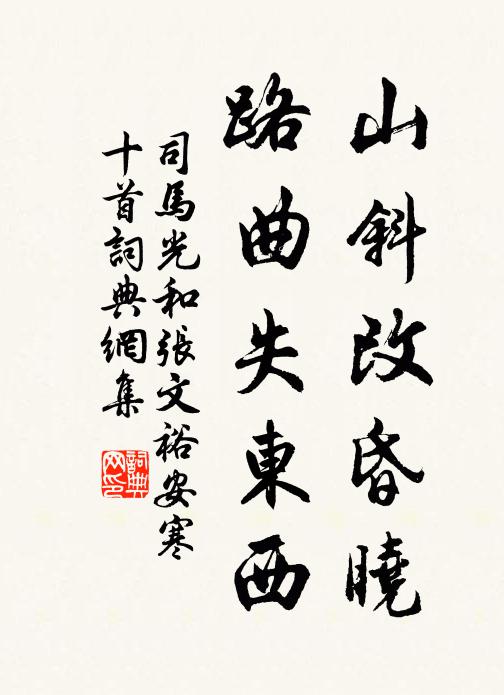 山斜改昏曉
路曲失東西
司馬光和張文裕安寒
十首詞典網集
詞典网印